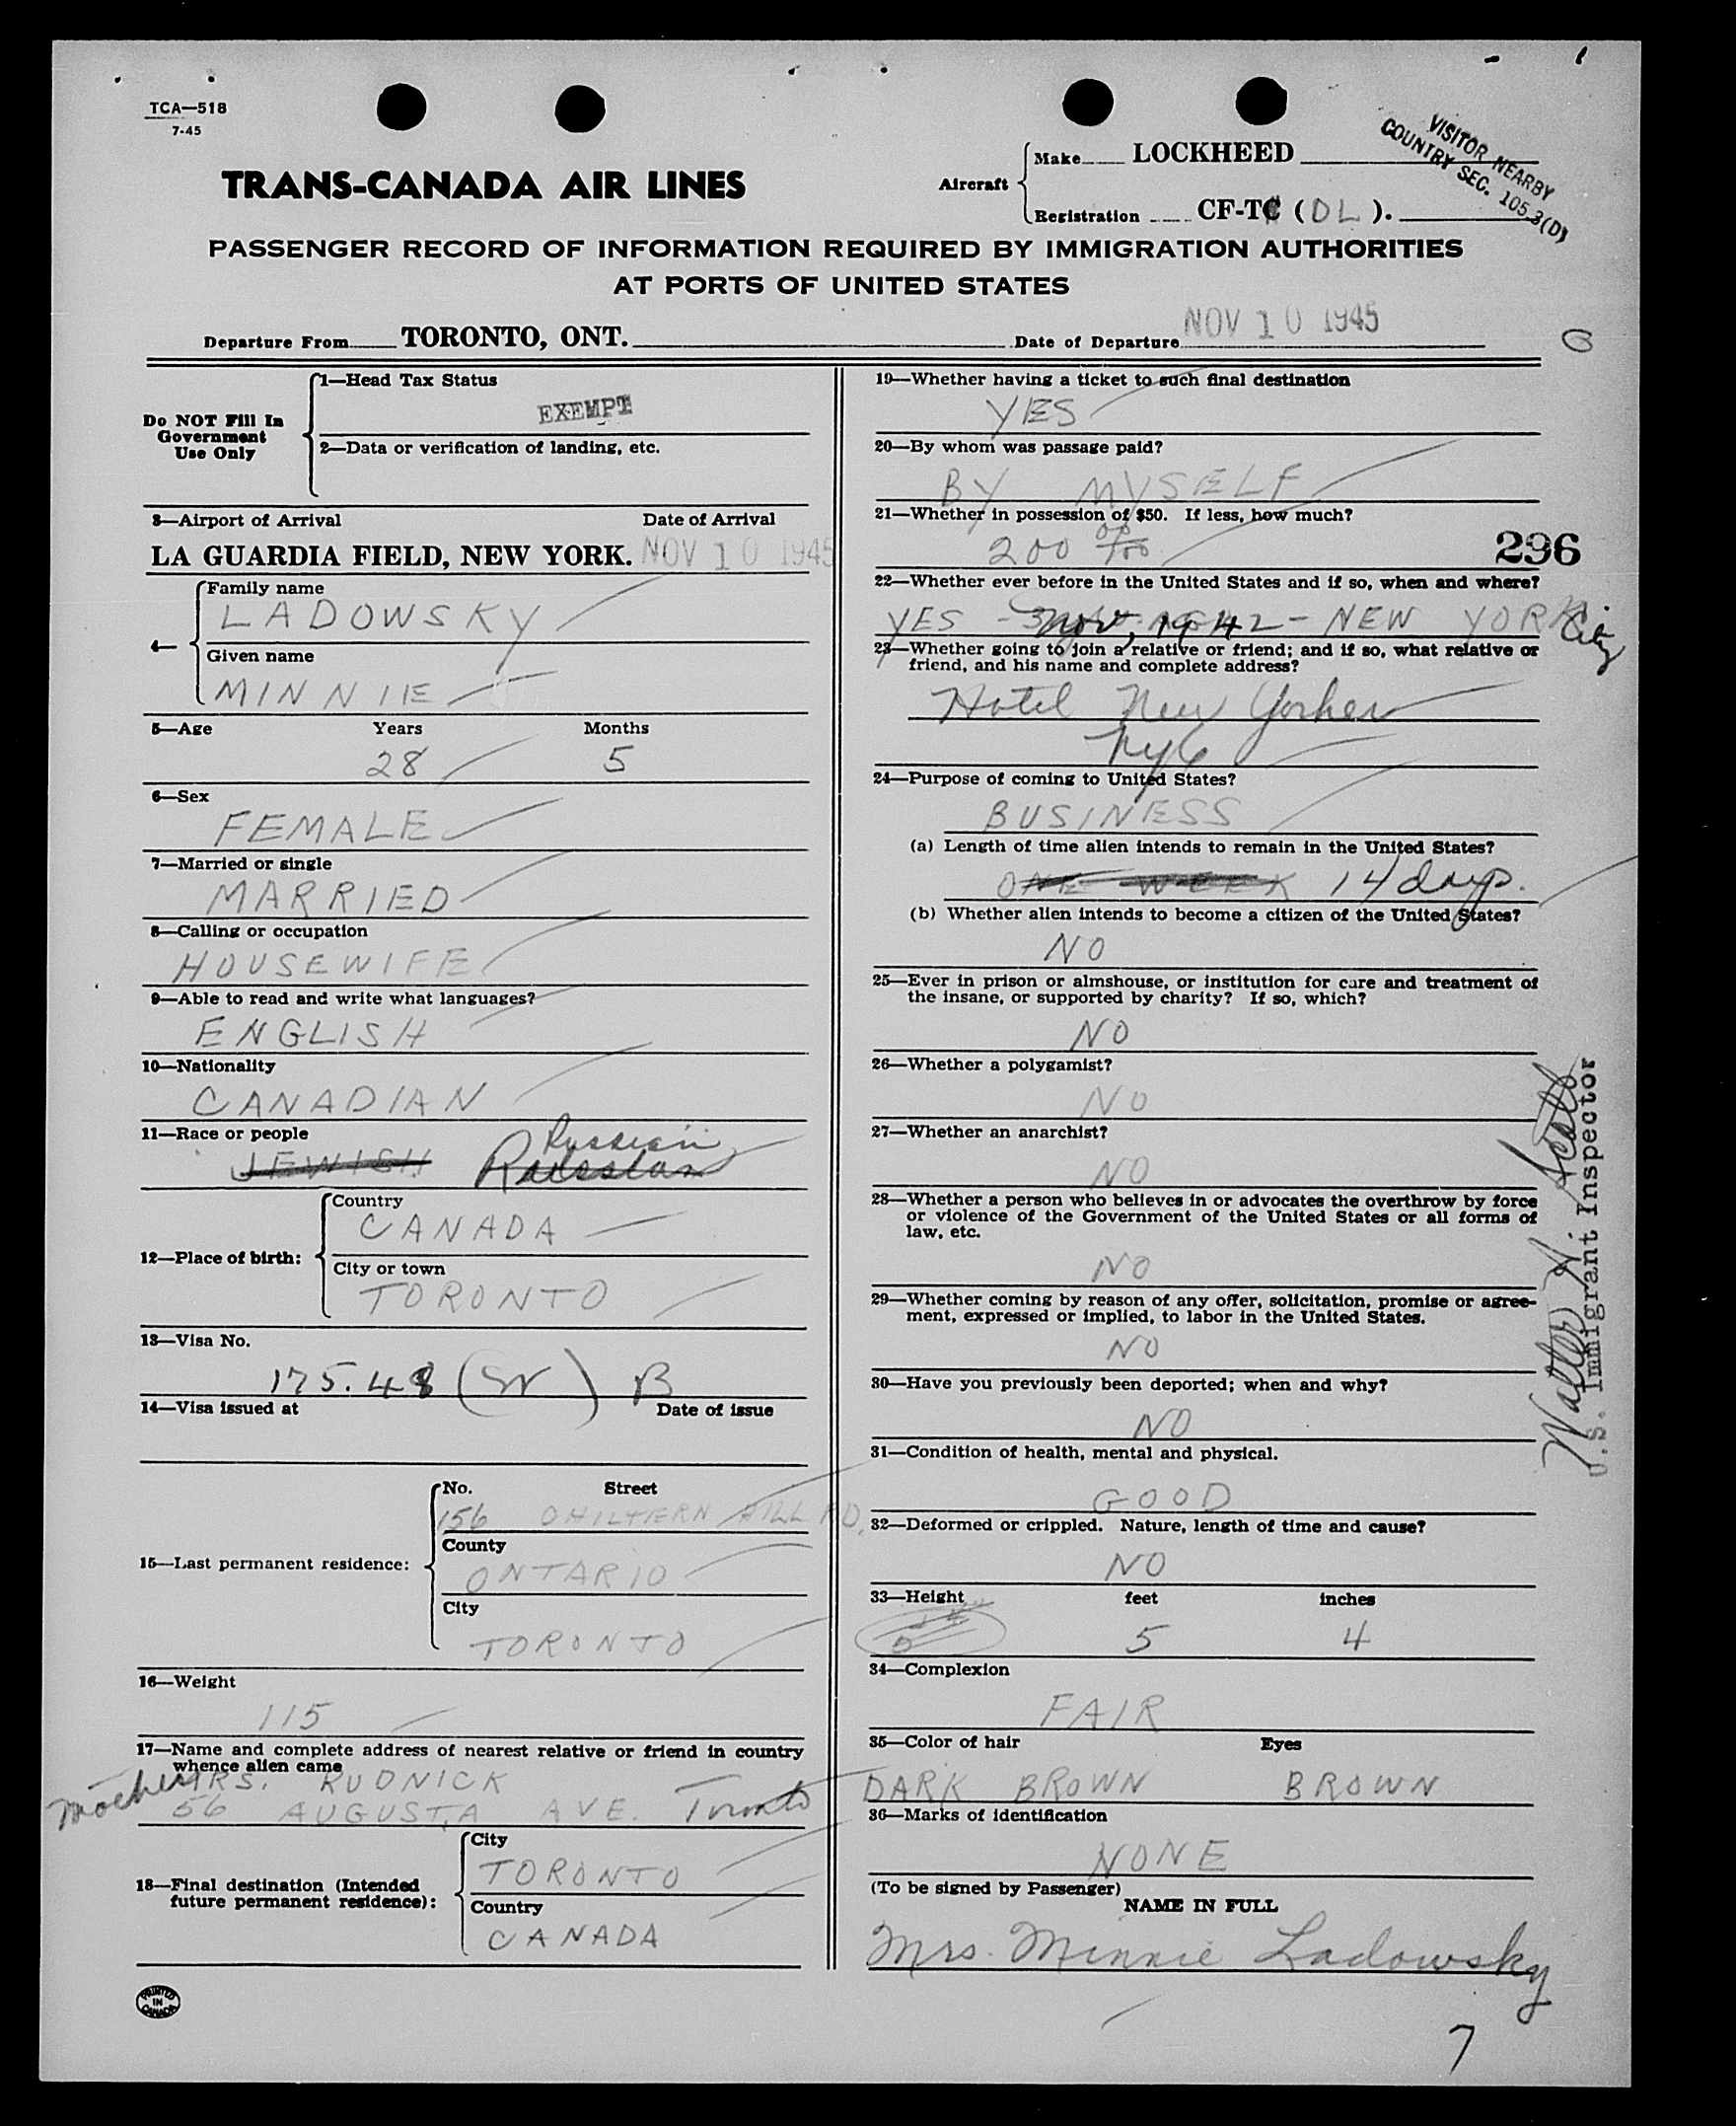 TCA—518
7-45
VISITOR NEARBY
COUNTRY SEC. 105.3(D)
TRANS-CANADA AIR LINES
Aircraft
Make LOCKHEED
Registration CF-TC (DL).
PASSENGER RECORD OF INFORMATION REQUIRED BY IMMIGRATION AUTHORITIES
AT PORTS OF UNITED STATES
Departure From TORONTO, ONT. Date of Departure NOV 10 1945
Do NOT Fill In
Government
Use Only
1—Head Tax Status
EXEMPT
2—Data or verification of landing, etc.
3—Airport of Arrival Date of Arrival
LA GUARDIA FIELD, NEW YORK. NOV 10 1945
4—
Family name
LADOWSKY
Given name
MINNIE
5—Age Years Months
28 5
6—Sex
FEMALE
7—Married or single
MARRIED
8—Calling or occupation
HOUSEWIFE
9—Able to read and write what languages?
ENGLISH
10—Nationality
CANADIAN
11—Race or people
JEWISH Russian
12—Place of birth:
Country
CANADA
City or town
TORONTO
13—Visa No.
175.48 ( ) B
14—Visa issued at Date of issue
15—Last permanent residence:
No. Street
156 CHILTERN HILL RD.
County
ONTARIO
City
TORONTO
16—Weight
115
17—Name and complete address of nearest relative or friend in country
whence alien came
Mother MRS. RUDNICK
56 AUGUSTA AVE. Toronto
18—Final destination (Intended
future permanent residence):
City
TORONTO
Country
CANADA
PRINTED
IN
CANADA
19—Whether having a ticket to such final destination
YES
20—By whom was passage paid?
BY MYSELF
21—Whether in possession of $50. If less, how much?
200 00/100
296
22—Whether ever before in the United States and if so, when and where?
YES - Nov, 1942 - NEW YORK City
23—Whether going to join a relative or friend; and if so, what relative or
friend, and his name and complete address?
Hotel New Yorker
NYC
24—Purpose of coming to United States?
BUSINESS
(a) Length of time alien intends to remain in the United States?
ONE WEEK 14 days.
(b) Whether alien intends to become a citizen of the United States?
NO
25—Ever in prison or almshouse, or institution for care and treatment of
the insane, or supported by charity? If so, which?
NO
26—Whether a polygamist?
NO
27—Whether an anarchist?
NO
28—Whether a person who believes in or advocates the overthrow by force
or violence of the Government of the United States or all forms of
law, etc.
NO
29—Whether coming by reason of any offer, solicitation, promise or agree-
ment, expressed or implied, to labor in the United States.
NO
30—Have you previously been deported; when and why?
NO
31—Condition of health, mental and physical.
GOOD
32—Deformed or crippled. Nature, length of time and cause?
NO
33—Height feet inches
5 4
34—Complexion
FAIR
35—Color of hair Eyes
DARK BROWN BROWN
36—Marks of identification
NONE
(To be signed by Passenger)
NAME IN FULL
Mrs. Minnie Ladowsky
7
Walter H.
U.S. Immigrant Inspector